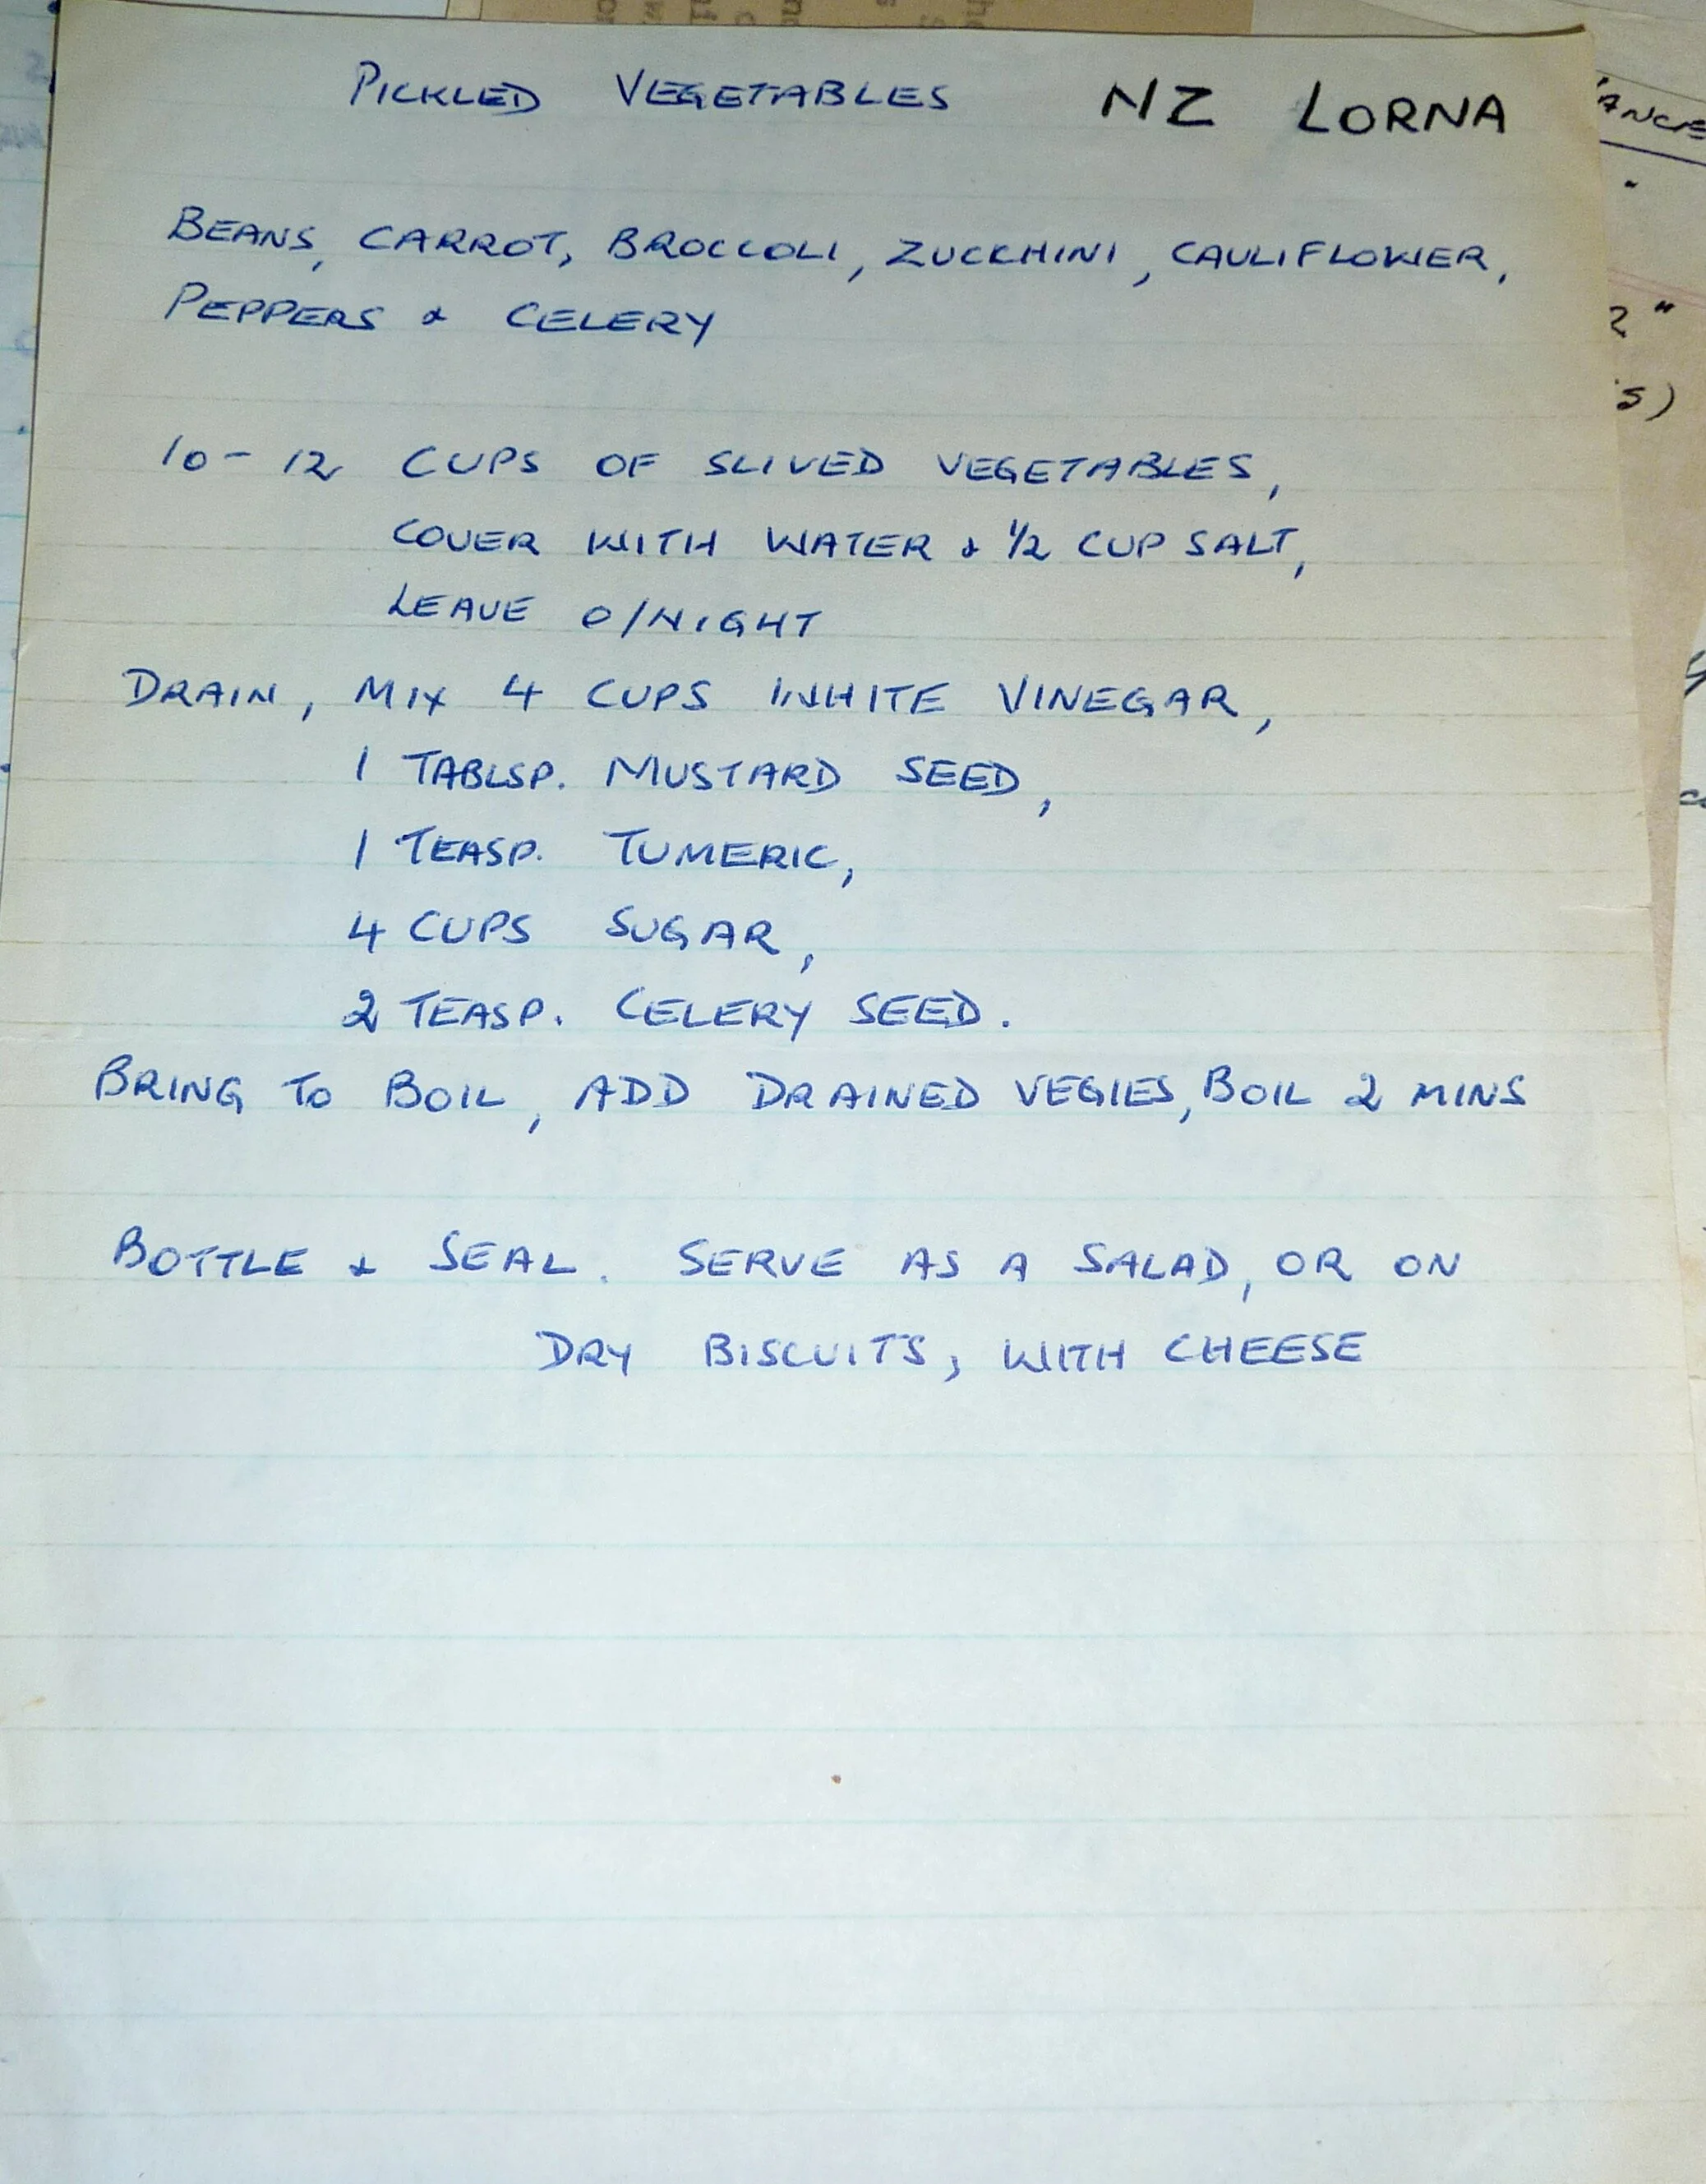 PICKLED VEGETABLES NZ LORNA
BEANS, CARROT, BROCCOLI, ZUCCHINI, CAULIFLOWER,
PEPPERS & CELERY
10-12 CUPS OF SLIVED VEGETABLES,
COVER WITH WATER & 1/2 CUP SALT,
LEAVE O/NIGHT
DRAIN, MIX 4 CUPS WHITE VINEGAR,
1 TABLSP. MUSTARD SEED,
1 TEASP. TUMERIC,
4 CUPS SUGAR,
2 TEASP. CELERY SEED.
BRING TO BOIL, ADD DRAINED VEGIES, BOIL 2 MINS
BOTTLE & SEAL. SERVE AS A SALAD, OR ON
DRY BISCUITS, WITH CHEESE